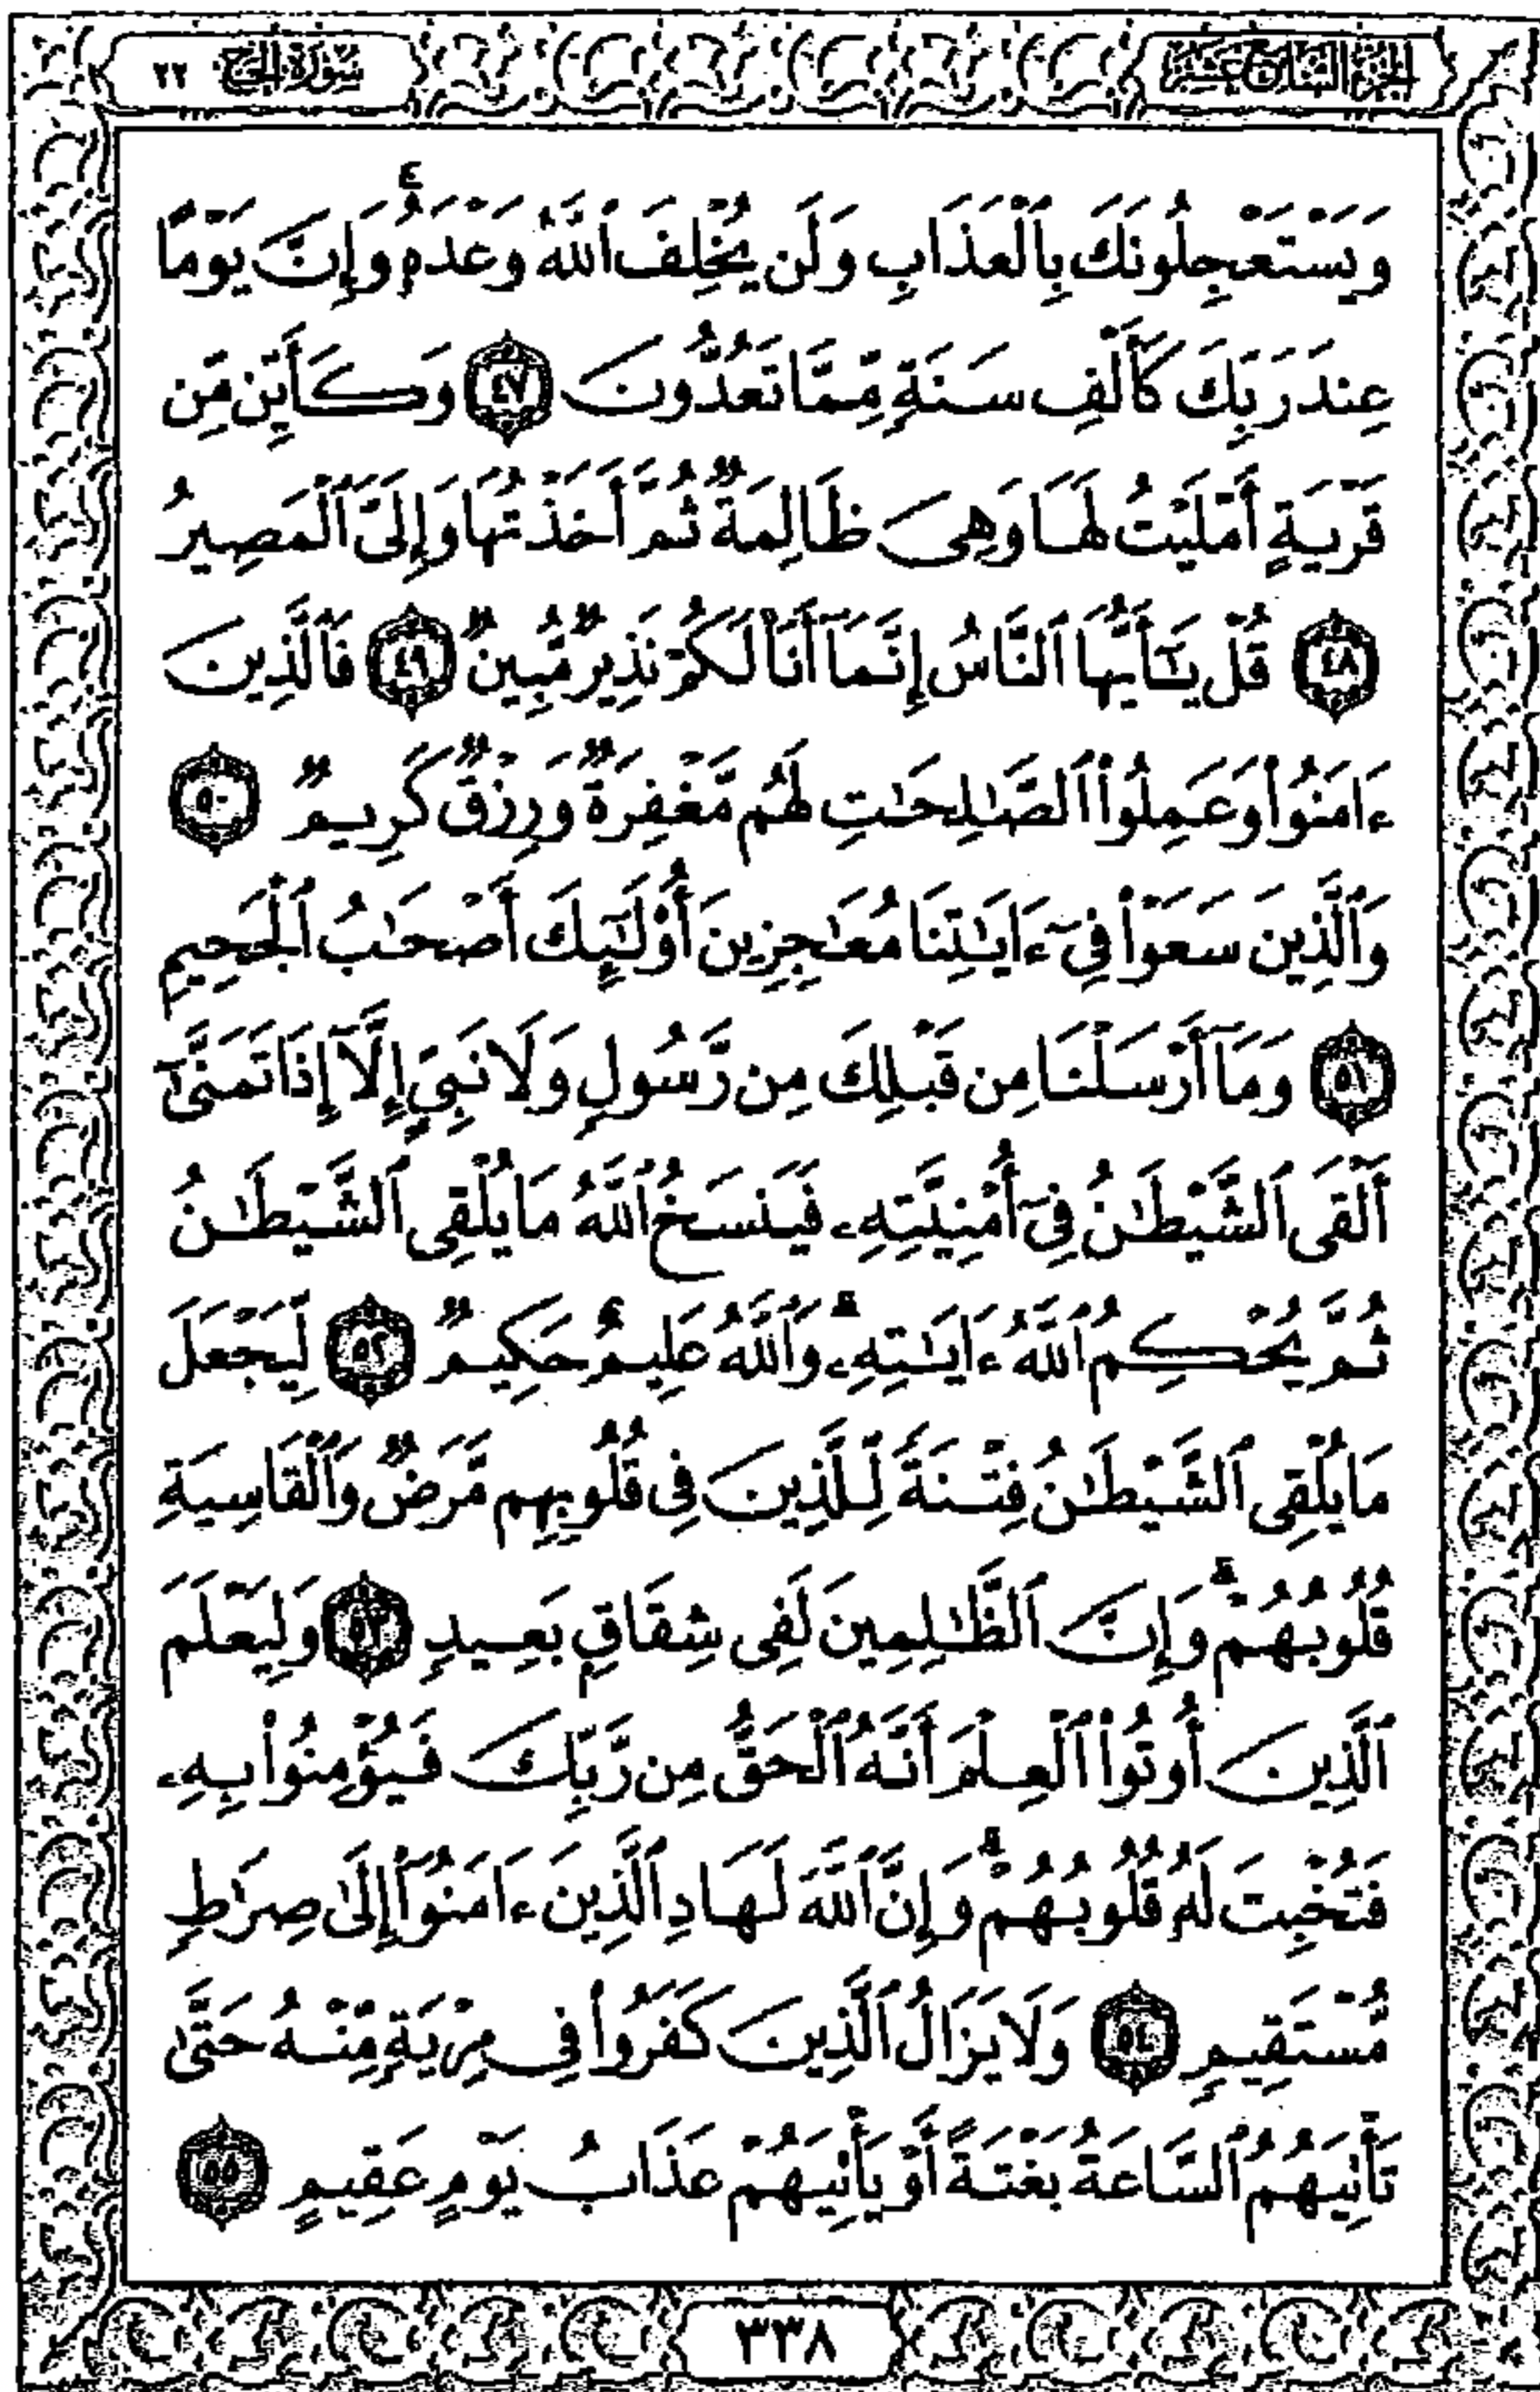 الجزء السابع عشر
سورة الحج ٢٢
وَيَسْتَعْجِلُونَكَ بِٱلْعَذَابِ وَلَن يُخْلِفَ ٱللَّهُ وَعْدَهُۥ ۚ وَإِنَّ يَوْمًا
عِندَ رَبِّكَ كَأَلْفِ سَنَةٍ مِّمَّا تَعُدُّونَ ٤٧ وَكَأَيِّن مِّن
قَرْيَةٍ أَمْلَيْتُ لَهَا وَهِىَ ظَالِمَةٌ ثُمَّ أَخَذْتُهَا وَإِلَىَّ ٱلْمَصِيرُ
٤٨ قُلْ يَـٰٓأَيُّهَا ٱلنَّاسُ إِنَّمَآ أَنَا۠ لَكُمْ نَذِيرٌ مُّبِينٌ ٤٩ فَٱلَّذِينَ
ءَامَنُوا۟ وَعَمِلُوا۟ ٱلصَّـٰلِحَـٰتِ لَهُم مَّغْفِرَةٌ وَرِزْقٌ كَرِيمٌ ٥٠
وَٱلَّذِينَ سَعَوْا۟ فِىٓ ءَايَـٰتِنَا مُعَـٰجِزِينَ أُو۟لَـٰٓئِكَ أَصْحَـٰبُ ٱلْجَحِيمِ
٥١ وَمَآ أَرْسَلْنَا مِن قَبْلِكَ مِن رَّسُولٍ وَلَا نَبِىٍّ إِلَّآ إِذَا تَمَنَّىٰٓ
أَلْقَى ٱلشَّيْطَـٰنُ فِىٓ أُمْنِيَّتِهِۦ فَيَنسَخُ ٱللَّهُ مَا يُلْقِى ٱلشَّيْطَـٰنُ
ثُمَّ يُحْكِمُ ٱللَّهُ ءَايَـٰتِهِۦ ۗ وَٱللَّهُ عَلِيمٌ حَكِيمٌ ٥٢ لِّيَجْعَلَ
مَا يُلْقِى ٱلشَّيْطَـٰنُ فِتْنَةً لِّلَّذِينَ فِى قُلُوبِهِم مَّرَضٌ وَٱلْقَاسِيَةِ
قُلُوبُهُمْ ۗ وَإِنَّ ٱلظَّـٰلِمِينَ لَفِى شِقَاقٍ بَعِيدٍ ٥٣ وَلِيَعْلَمَ
ٱلَّذِينَ أُوتُوا۟ ٱلْعِلْمَ أَنَّهُ ٱلْحَقُّ مِن رَّبِّكَ فَيُؤْمِنُوا۟ بِهِۦ
فَتُخْبِتَ لَهُۥ قُلُوبُهُمْ ۗ وَإِنَّ ٱللَّهَ لَهَادِ ٱلَّذِينَ ءَامَنُوٓا۟ إِلَىٰ صِرَٰطٍ
مُّسْتَقِيمٍ ٥٤ وَلَا يَزَالُ ٱلَّذِينَ كَفَرُوا۟ فِى مِرْيَةٍ مِّنْهُ حَتَّىٰ
تَأْتِيَهُمُ ٱلسَّاعَةُ بَغْتَةً أَوْ يَأْتِيَهُمْ عَذَابُ يَوْمٍ عَقِيمٍ ٥٥
٣٣٨